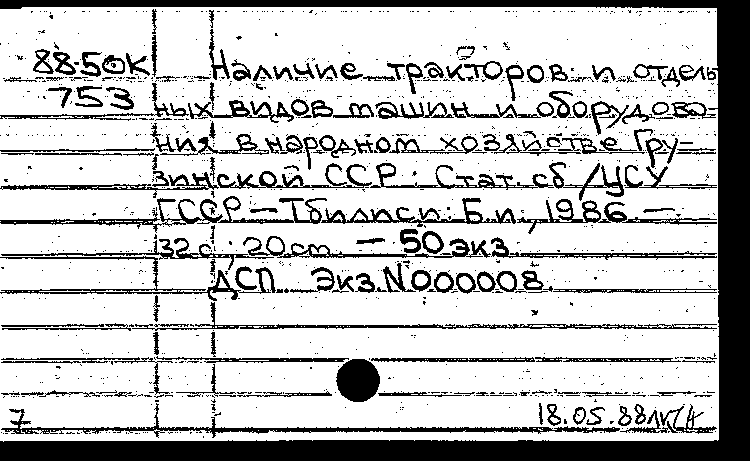 88-5ОК Наличие тракторов и отдель
753 ных видов машин и оборудова-
ния в народном хозяйстве Гру-
зинской ССР: Стат. сб / ЦСУ
ГССР. — Тбилиси: Б.и., 1986. —
32 с.; 20 см. — 50 экз.
ДСП Экз. N000008.
7 18.05.88